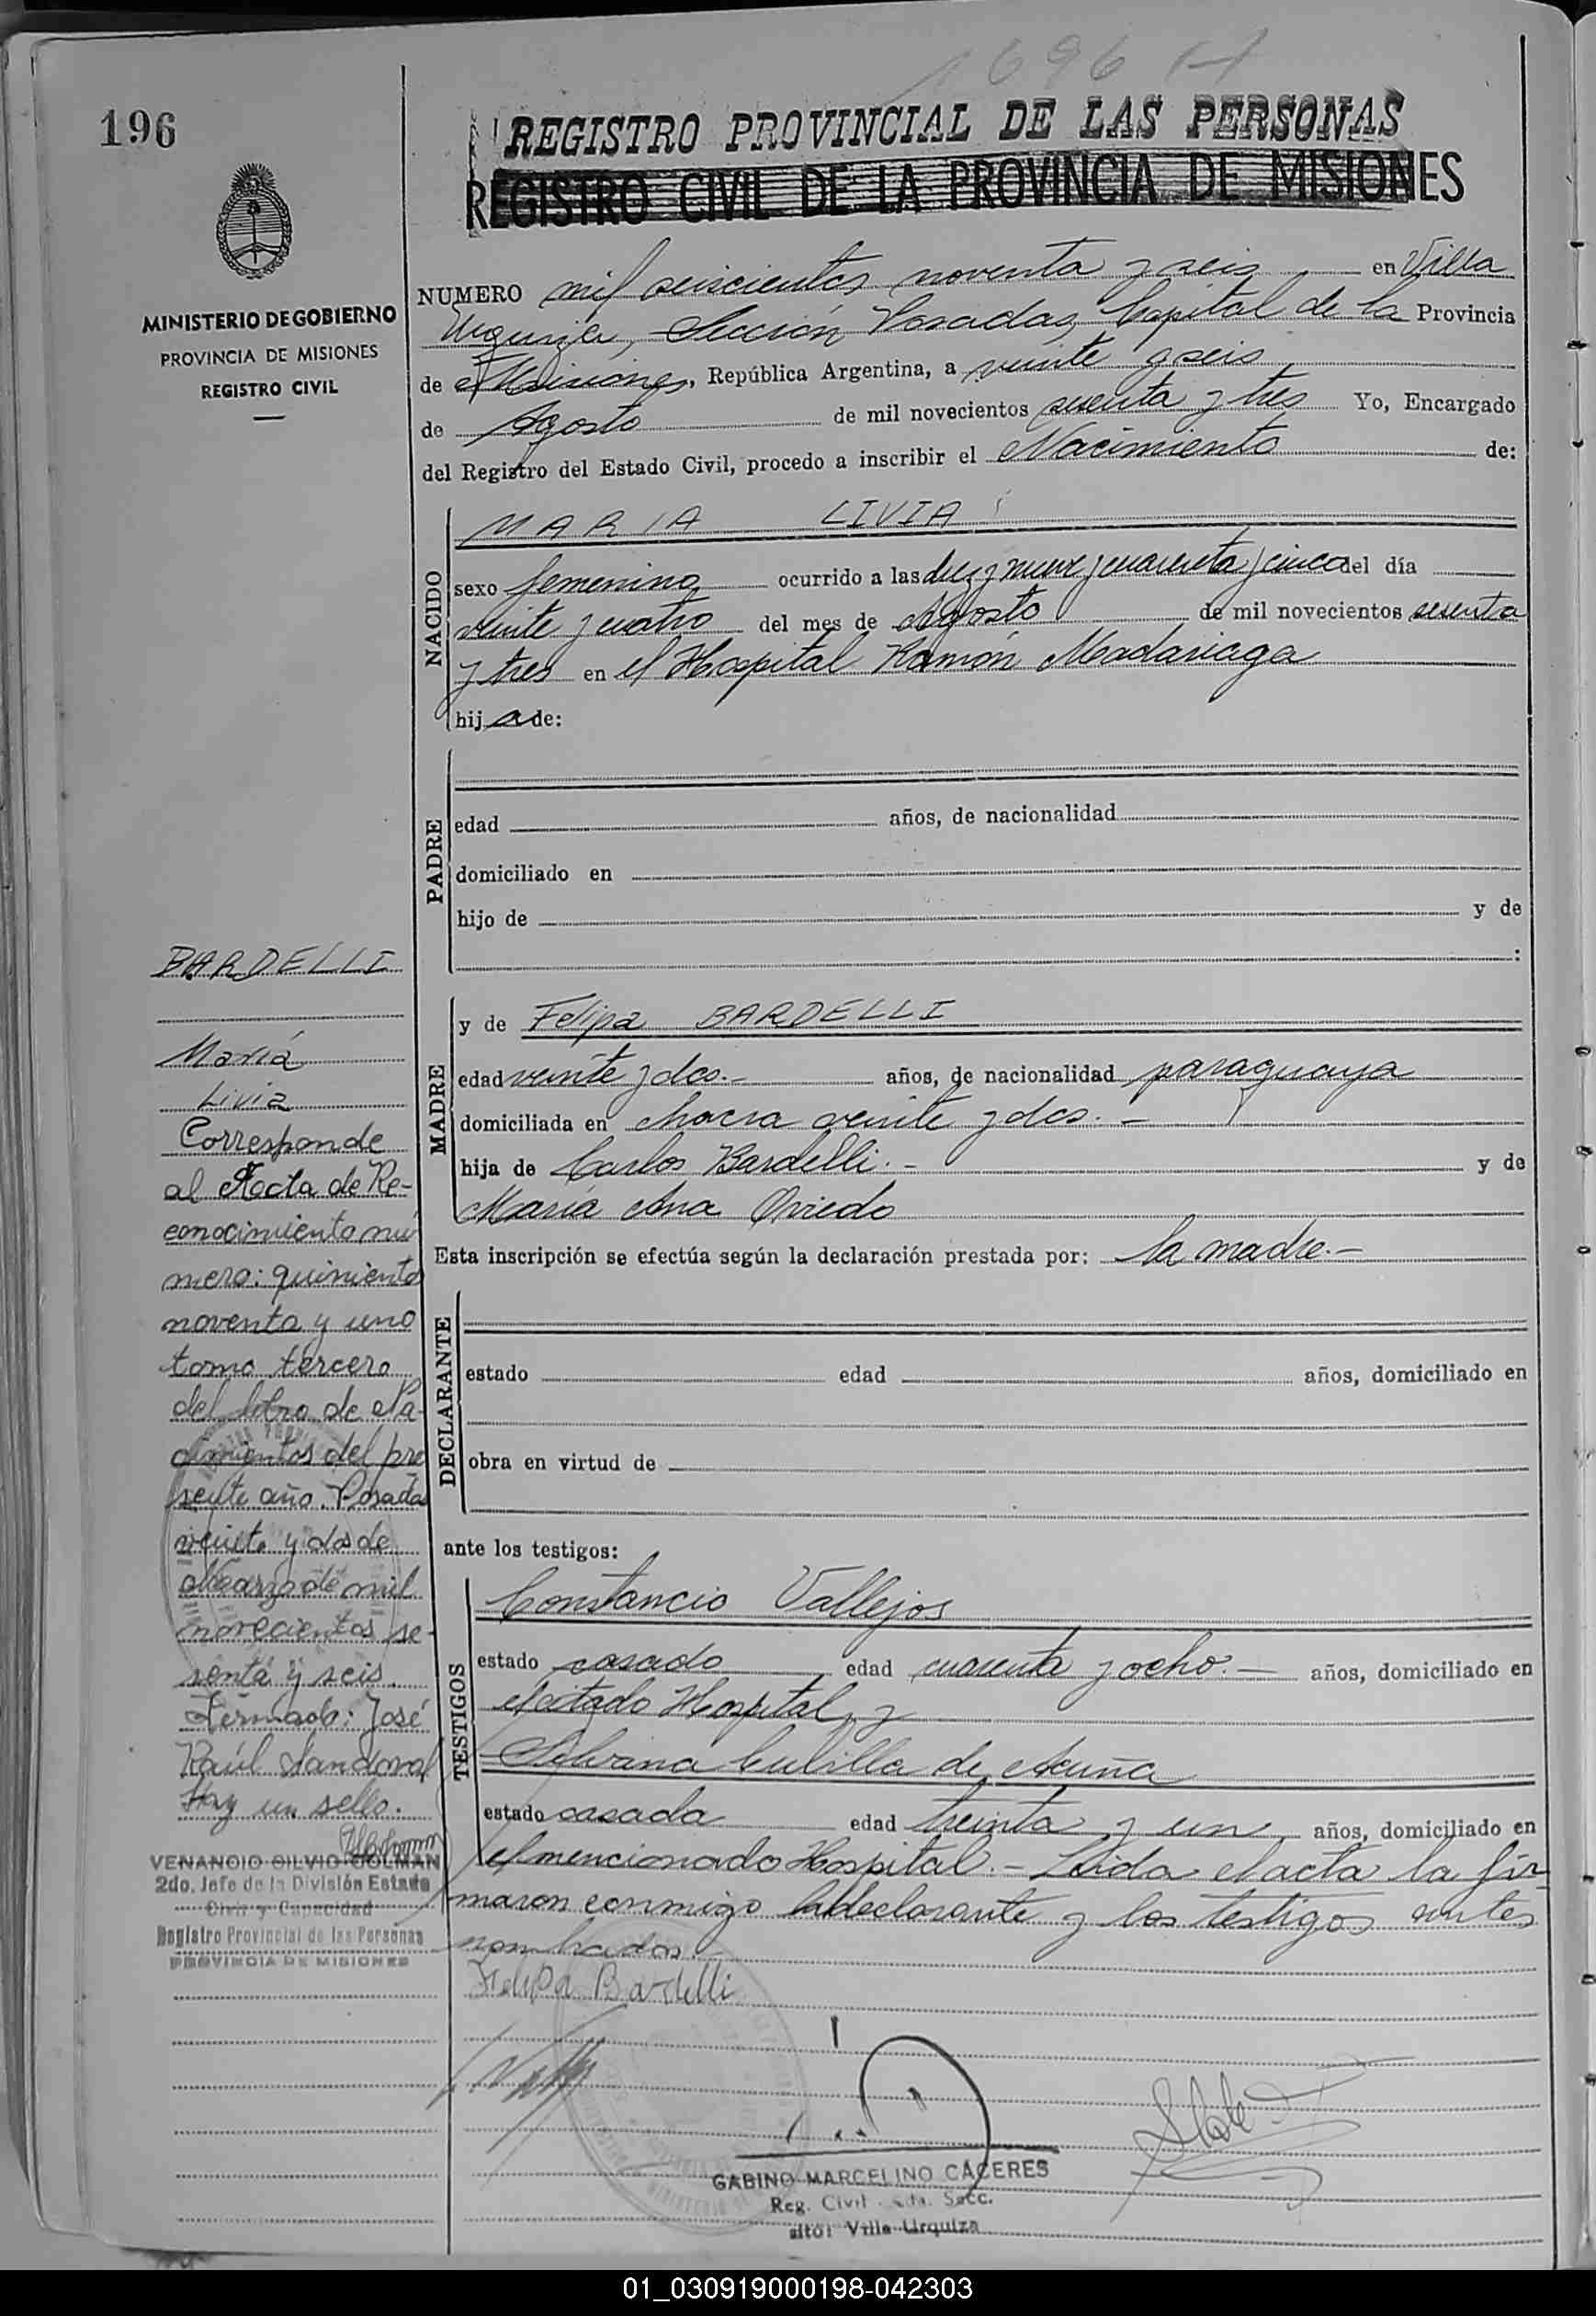 1696 H
196
REGISTRO PROVINCIAL DE LAS PERSONAS
REGISTRO CIVIL DE LA PROVINCIA DE MISIONES
MINISTERIO DE GOBIERNO
PROVINCIA DE MISIONES
REGISTRO CIVIL
NUMERO mil seiscientos noventa y seis en Villa
Urquiza, Sección Posadas, Capital de la Provincia
de Misiones, República Argentina, a veinte y seis
de Agosto de mil novecientos sesenta y tres Yo, Encargado
del Registro del Estado Civil, procedo a inscribir el Nacimiento de:
NACIDO
MARIA LIVIA
sexo femenino ocurrido a las diez y nueve y cuarenta y cinco del día
veinte y cuatro del mes de Agosto de mil novecientos sesenta
y tres en el Hospital Ramón Madariaga
hija de:
PADRE
edad años, de nacionalidad
domiciliado en
hijo de y de
:
MADRE
y de Felipa BARDELLI
edad veinte y dos.- años, de nacionalidad paraguaya
domiciliada en chacra veinte y dos.-
hija de Carlos Bardelli.- y de
María Ana Oviedo
Esta inscripción se efectúa según la declaración prestada por: la madre.-
DECLARANTE
estado edad años, domiciliado en
obra en virtud de
ante los testigos:
TESTIGOS
Constancio Vallejos
estado casado edad cuarenta y ocho.- años, domiciliado en
el citado Hospital, y
de Acuña
estado casada edad treinta y un años, domiciliado en
el mencionado Hospital.- Leída el acta la fir-
maron conmigo la declarante y los testigos antes
nombrados.-
Felipa Bardelli
GABINO MARCELINO CACERES
Reg. Civil Secc.
sito: Villa Urquiza
BARDELLI
María
Livia
Corresponde
al Acta de Re-
conocimiento nú
mero: quinientos
noventa y uno
tomo tercero
del libro de Na-
cimientos del pre
sente año. Posadas
veinte y dos de
Marzo de mil
novecientos se-
senta y seis.
Firmado: José
Raúl Sandoval
Hay un sello.
VENANCIO SILVIO GOLMAN
2do. Jefe de la División Estado
Civil y Capacidad
Registro Provincial de las Personas
PROVINCIA DE MISIONES
01_030919000198-042303